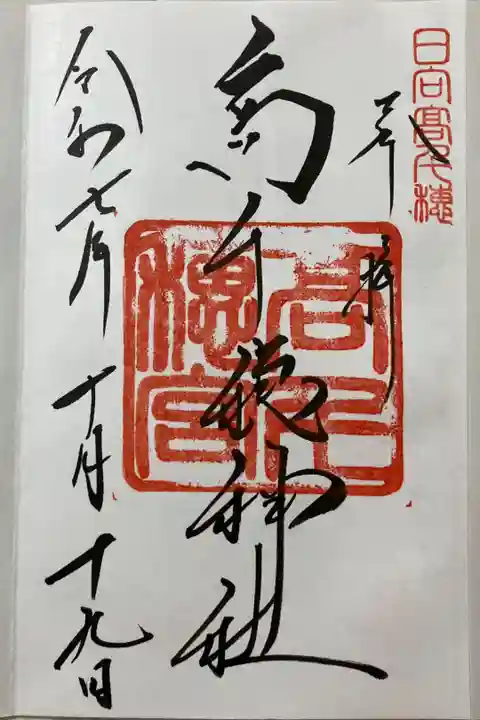 日向高千穂
奉拝
高千穂神社
令和七年十月十九日
高千
穂宮